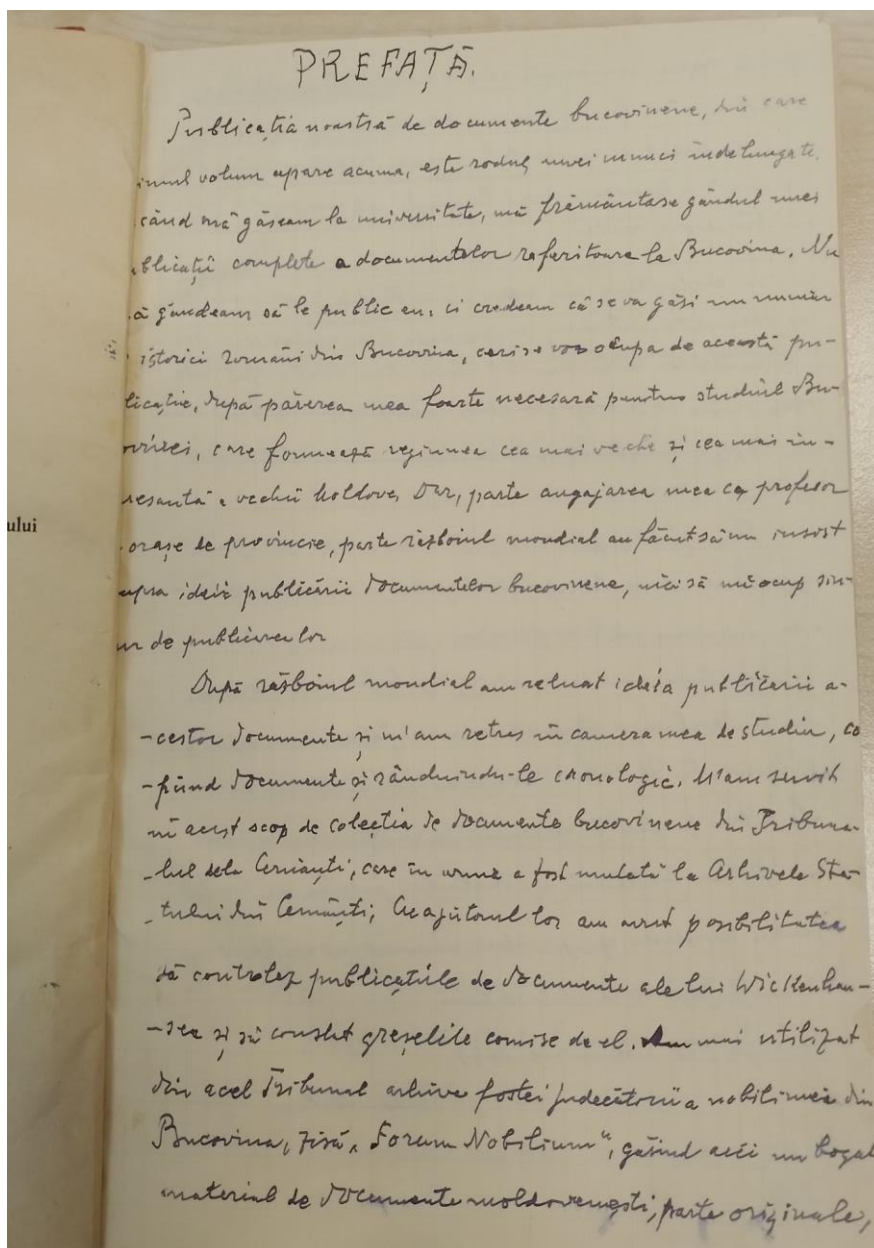 PREFAȚĂ.
Publicația noastră de documente bucovinene, din care
imul volum apare acuma, este rodul unei munci îndelungate.
când mă găseam la universitate, mă frământase gândul unei
blicații complete a documentelor referitoare la Bucovina. Nu
ă gândeam să le public eu, ci credeam că se va găsi un număr
istorici români din Bucovina, cari se vor ocupa de această pu-
licație, după părerea mea foarte necesară pentru studiul Bu-
ovinei, care formează regiunea cea mai veche și cea mai in-
resantă a vechii Moldove. Dar, parte angajarea mea ca profesor
orașe de provincie, parte războiul mondial au făcut să nu insist
supra ideii publicării documentelor bucovinene, nici să mă ocup sin-
ur de publicarea lor
După războiul mondial am reluat ideia publicării a-
-cestor documente și m'am retras în camera mea de studiu, co
-piind documente și rânduindu-le cronologic. M'am servit
în acest scop de colecția de documente bucovinene din Tribuna-
-lul dela Cernăuți, care în urmă a fost mutată la Arhivele Sta-
-tului din Cernăuți; Cu ajutorul lor am avut posibilitatea
să controlez publicațiile de documente ale lui Wickenhau-
-ser și să constat greșelile comise de el. Am mai utilizat
din acel Tribunal arhiva fostei judecătorii a nobilimei din
Bucovina, zisă „Forum Nobilium", găsind aici un bogat
material de documente moldovenești, parte originale,
ului